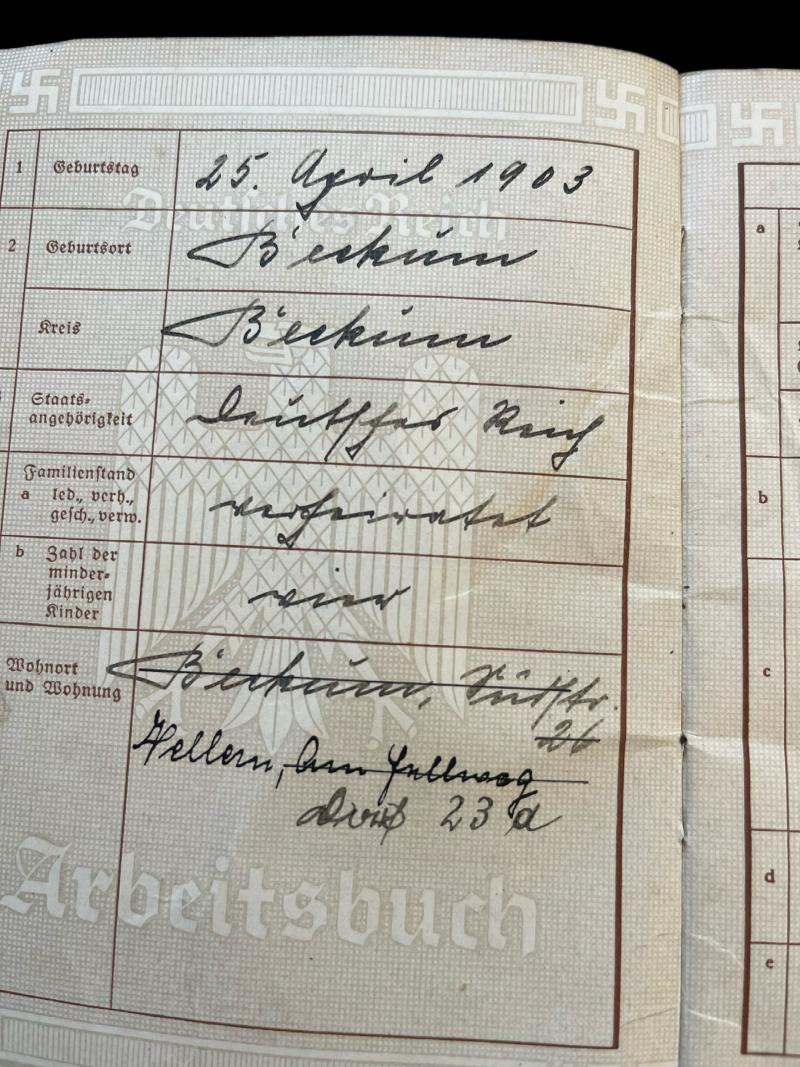 1 Geburtstag 25. April 1903
Deutsches Reich
2 Geburtsort Beckum
Kreis Beckum
Staats-
angehörigkeit Deutsches Reich
Familienstand
a led., verh.,
gesch., verw. verheiratet
b Zahl der
minder-
jährigen
Kinder vier
Wohnort
und Wohnung Beckum, Südstr.
26
Hellern, Am Hellweg
23 a
Arbeitsbuch
a
b
c
d
e